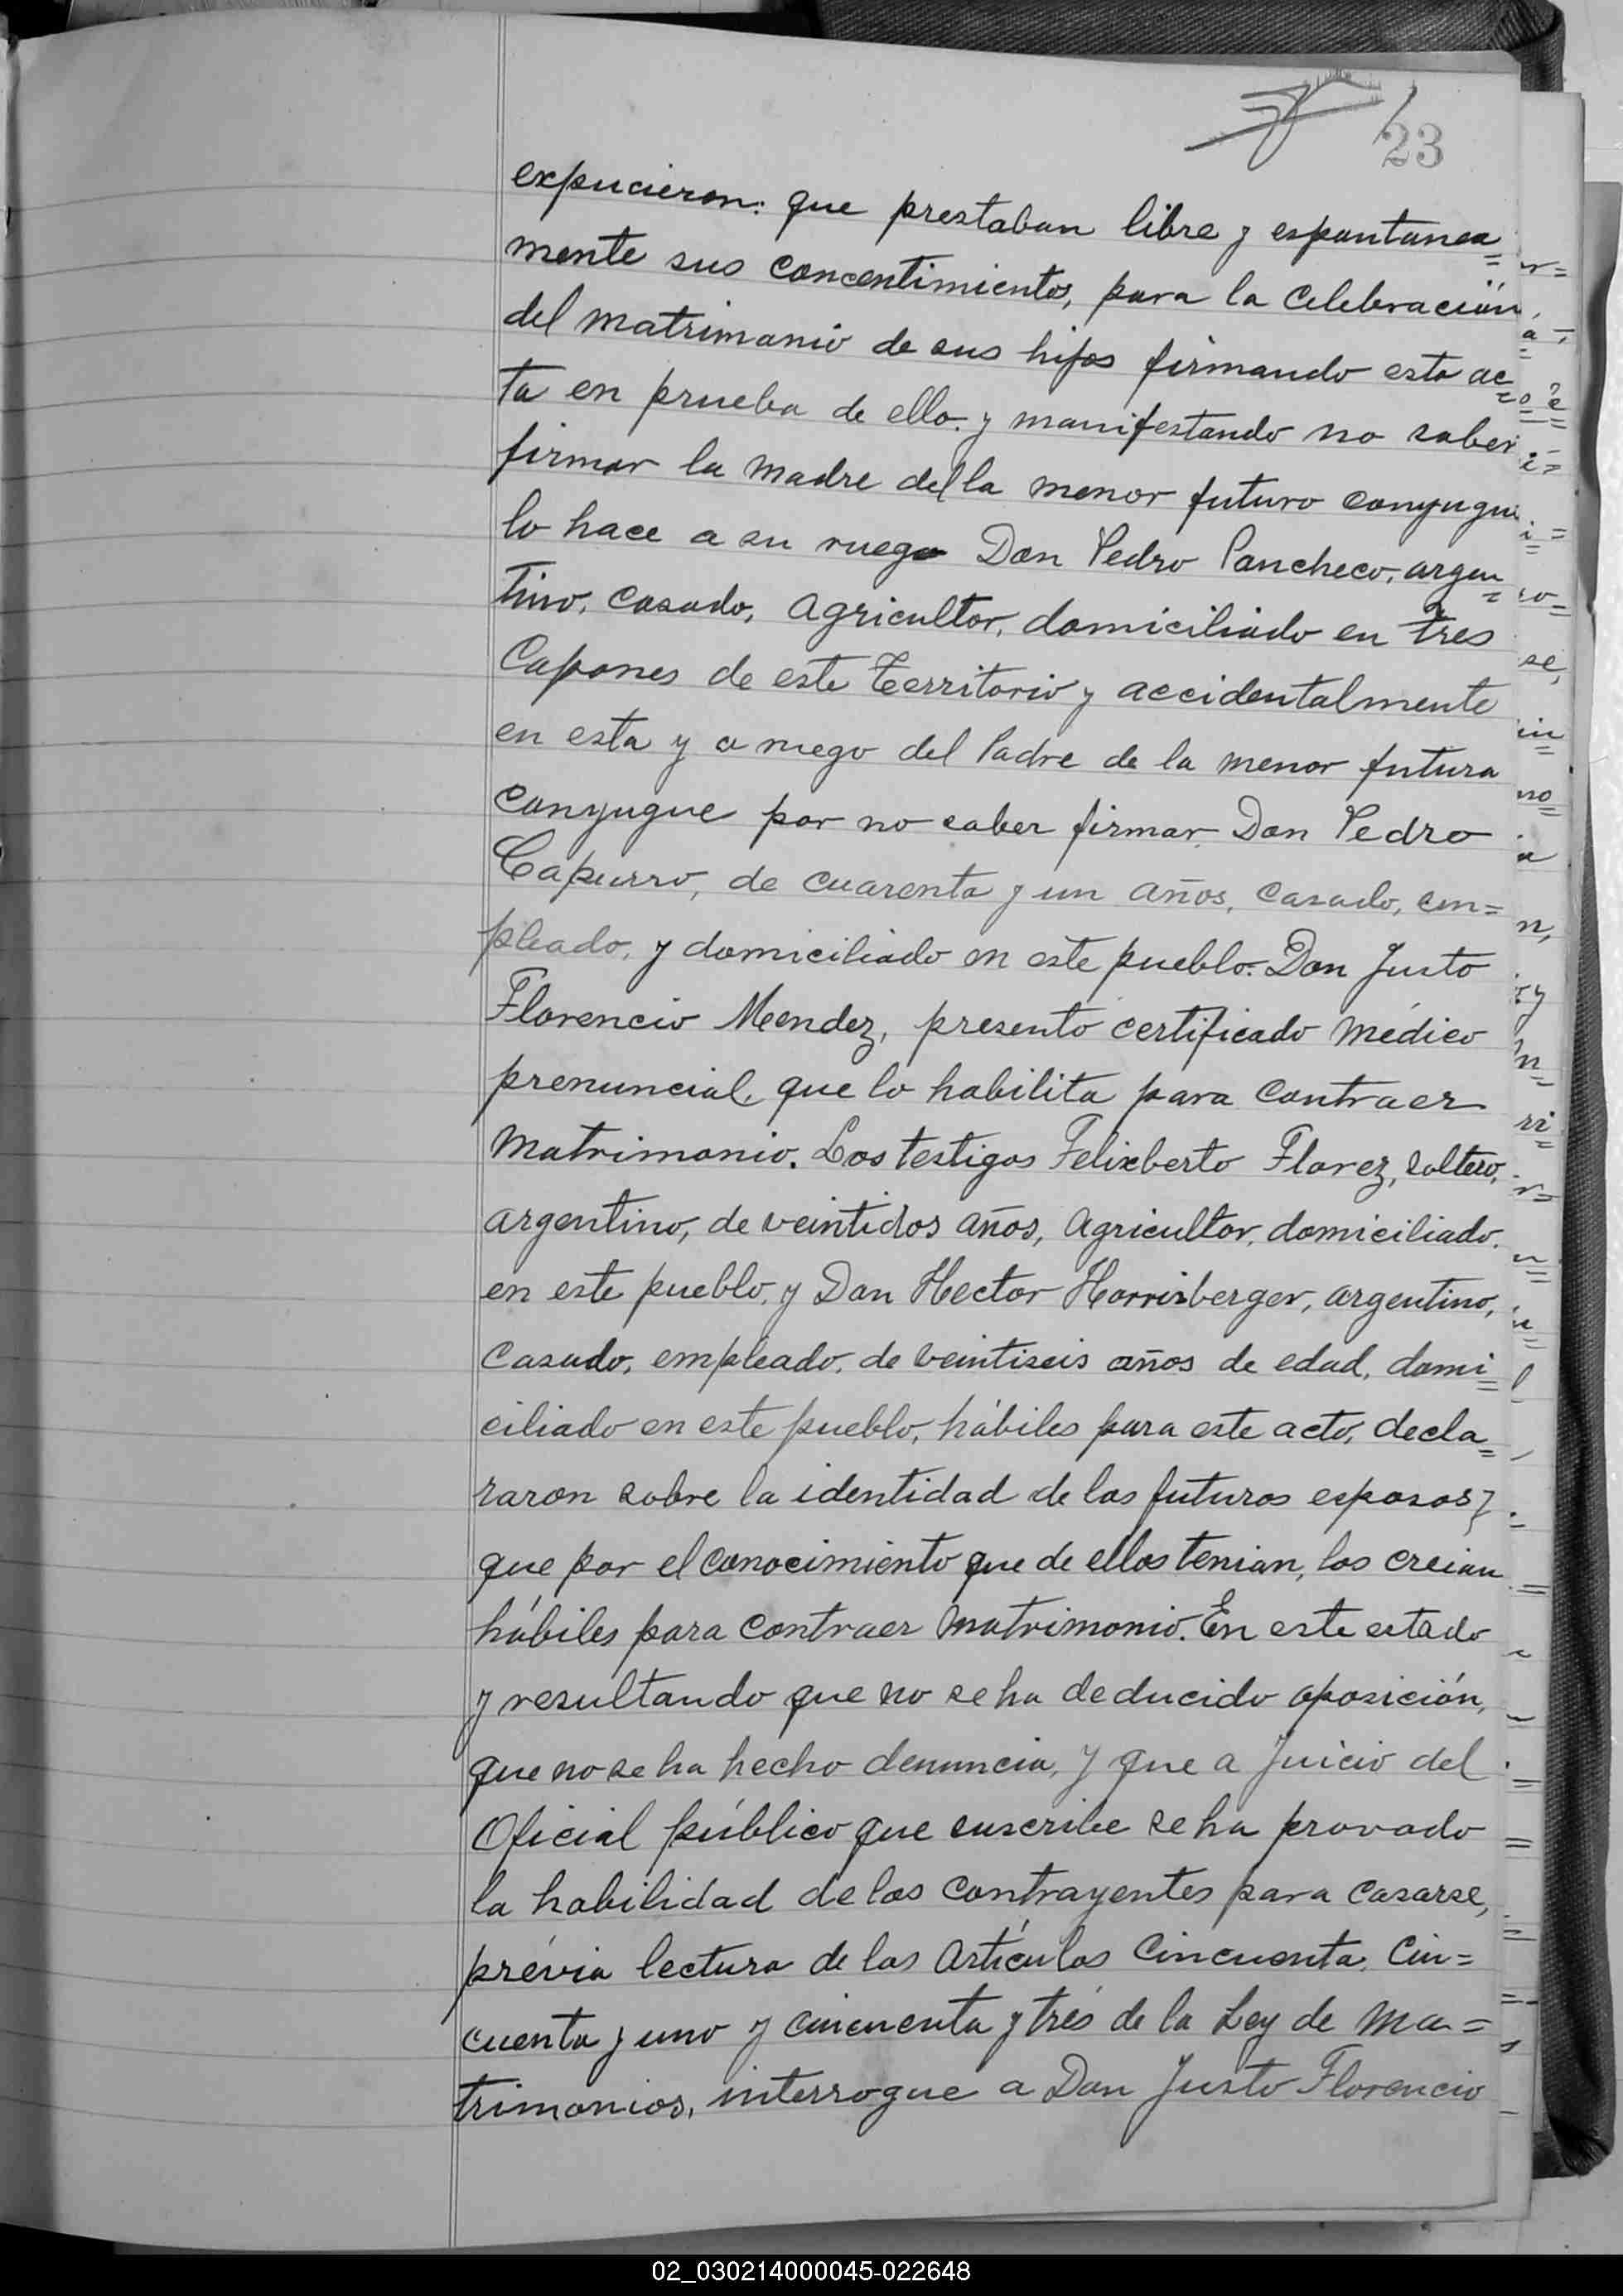 23
expucieron: que prestaban libre y espontanea=
mente sus concentimientos, para la celebración
del matrimonio de sus hijos firmando esta ac=
ta en prueba de ello. y manifestando no saber
firmar la madre del la menor futuro conyugue
lo hace a su ruego Don Pedro Pancheco, argen=
tino, casado, agricultor, domiciliado en tres
Capones de este Territorio y accidentalmente
en esta y a ruego del Padre de la menor futura
conyugue por no saber firmar, Don Pedro
Capurro, de cuarenta y un años, casado, em=
pleado, y domiciliado en este pueblo. Don Justo
Florencio Mendez, presentó certificado médico
prenuncial, que lo habilita para contraer
matrimonio. Los testigos Felixberto Florez, soltero,
argentino, de veintidos años, agricultor, domiciliado.
en este pueblo, y Don Hector Horrisberger, argentino,
casado, empleado, de veintiseis años de edad, domi=
ciliado en este pueblo, hábiles para este acto, decla=
raron sobre la identidad de los futuros esposos y
que por el conocimiento que de ellos tenian, los creian
hábiles para contraer matrimonio. En este estado
y resultando que no se ha deducido oposición,
que no se ha hecho denuncia, y que a juicio del
Oficial público que suscribe se ha provado
la habilidad de los contrayentes para casarse,
prévia lectura de los Artículos Cincuenta, Cin=
cuenta y uno y cincuenta y trés de la Ley de Ma=
trimonios, interrogue a Don Justo Florencio
02_030214000045-022648